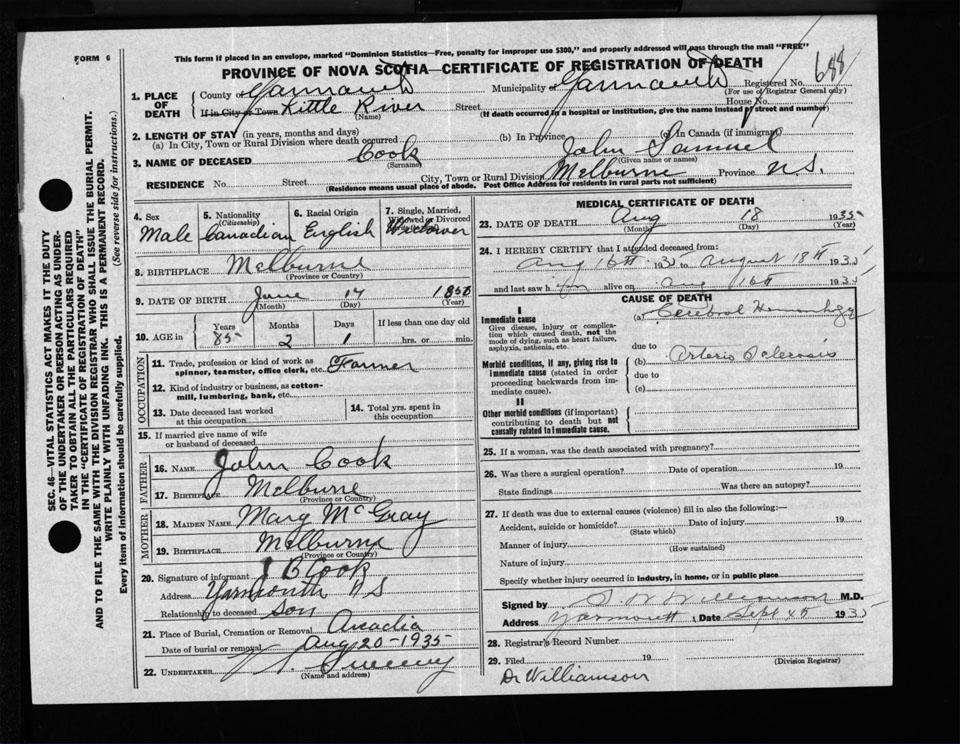 FORM 6
This form if placed in an envelope, marked "Dominion Statistics—Free, penalty for improper use $300," and properly addressed will pass through the mail "FREE"
PROVINCE OF NOVA SCOTIA—CERTIFICATE OF REGISTRATION OF DEATH
688
1. PLACE OF DEATH
County of Yarmouth
Municipality of Yarmouth
Registered No.
(For use of Registrar General only)
If in City or Town Kittle River
(Name)
Street
House No.
(If death occurred in a hospital or institution, give the name instead of street and number)
2. LENGTH OF STAY (in years, months and days)
(a) In City, Town or Rural Division where death occurred
(b) In Province
(c) In Canada (if immigrant)
3. NAME OF DECEASED Cook John Samuel
(Surname) (Given name or names)
RESIDENCE No. Street City, Town or Rural Division Melburne Province N.S.
(Residence means usual place of abode. Post Office Address for residents in rural parts not sufficient)
4. Sex
Male
5. Nationality
(Citizenship)
Canadian
6. Racial Origin
English
7. Single, Married, Widowed or Divorced
Widower
8. BIRTHPLACE Melburne
(Province or Country)
9. DATE OF BIRTH June 17 1850
(Month) (Day) (Year)
10. AGE in
Years Months Days If less than one day old
85 2 1 hrs. or min.
OCCUPATION
11. Trade, profession or kind of work as spinner, teamster, office clerk, etc. Farmer
12. Kind of industry or business, as cotton-mill, lumbering, bank, etc.
13. Date deceased last worked at this occupation
14. Total yrs. spent in this occupation
15. If married give name of wife or husband of deceased
FATHER
16. NAME John Cook
17. BIRTHPLACE Melburne
(Province or Country)
MOTHER
18. MAIDEN NAME Mary McGray
19. BIRTHPLACE Melburne
(Province or Country)
20. Signature of informant J B Cook
Address Yarmouth N S
Relationship to deceased Son
21. Place of Burial, Cremation or Removal Arcadia
Date of burial or removal Aug 20 - 1935
22. UNDERTAKER Sweeny
(Name and address)
MEDICAL CERTIFICATE OF DEATH
23. DATE OF DEATH Aug 18 1935
(Month) (Day) (Year)
24. I HEREBY CERTIFY that I attended deceased from:
Aug 16th 1935 to August 18th 1935
and last saw him alive on Aug 16th 1935
CAUSE OF DEATH
I
Immediate cause
Give disease, injury or complication which caused death, not the mode of dying, such as heart failure, asphyxia, asthenia, etc.
(a) Cerebral Hemorrhage
due to
Morbid conditions, if any, giving rise to immediate cause (stated in order proceeding backwards from immediate cause).
(b) Arterio Sclerosis
due to
(c)
II
Other morbid conditions (if important) contributing to death but not causally related to immediate cause.
25. If a woman, was the death associated with pregnancy?
26. Was there a surgical operation? Date of operation 19
State findings Was there an autopsy?
27. If death was due to external causes (violence) fill in also the following:—
Accident, suicide or homicide? Date of injury 19
(State which)
Manner of injury
(How sustained)
Nature of injury
Specify whether injury occurred in industry, in home, or in public place
Signed by Williamson M.D.
Address Yarmouth Date Sept 4th 1935
28. Registrar's Record Number
29. Filed 19
(Division Registrar)
Dr Williamson
SEC. 46—VITAL STATISTICS ACT MAKES IT THE DUTY
OF THE UNDERTAKER OR PERSON ACTING AS UNDER-
TAKER TO OBTAIN ALL THE PARTICULARS REQUIRED
IN THE "CERTIFICATE OF REGISTRATION OF DEATH"
AND TO FILE THE SAME WITH THE DIVISION REGISTRAR WHO SHALL ISSUE THE BURIAL PERMIT.
WRITE PLAINLY WITH UNFADING INK. THIS IS A PERMANENT RECORD.
Every item of information should be carefully supplied. (See reverse side for instructions.)